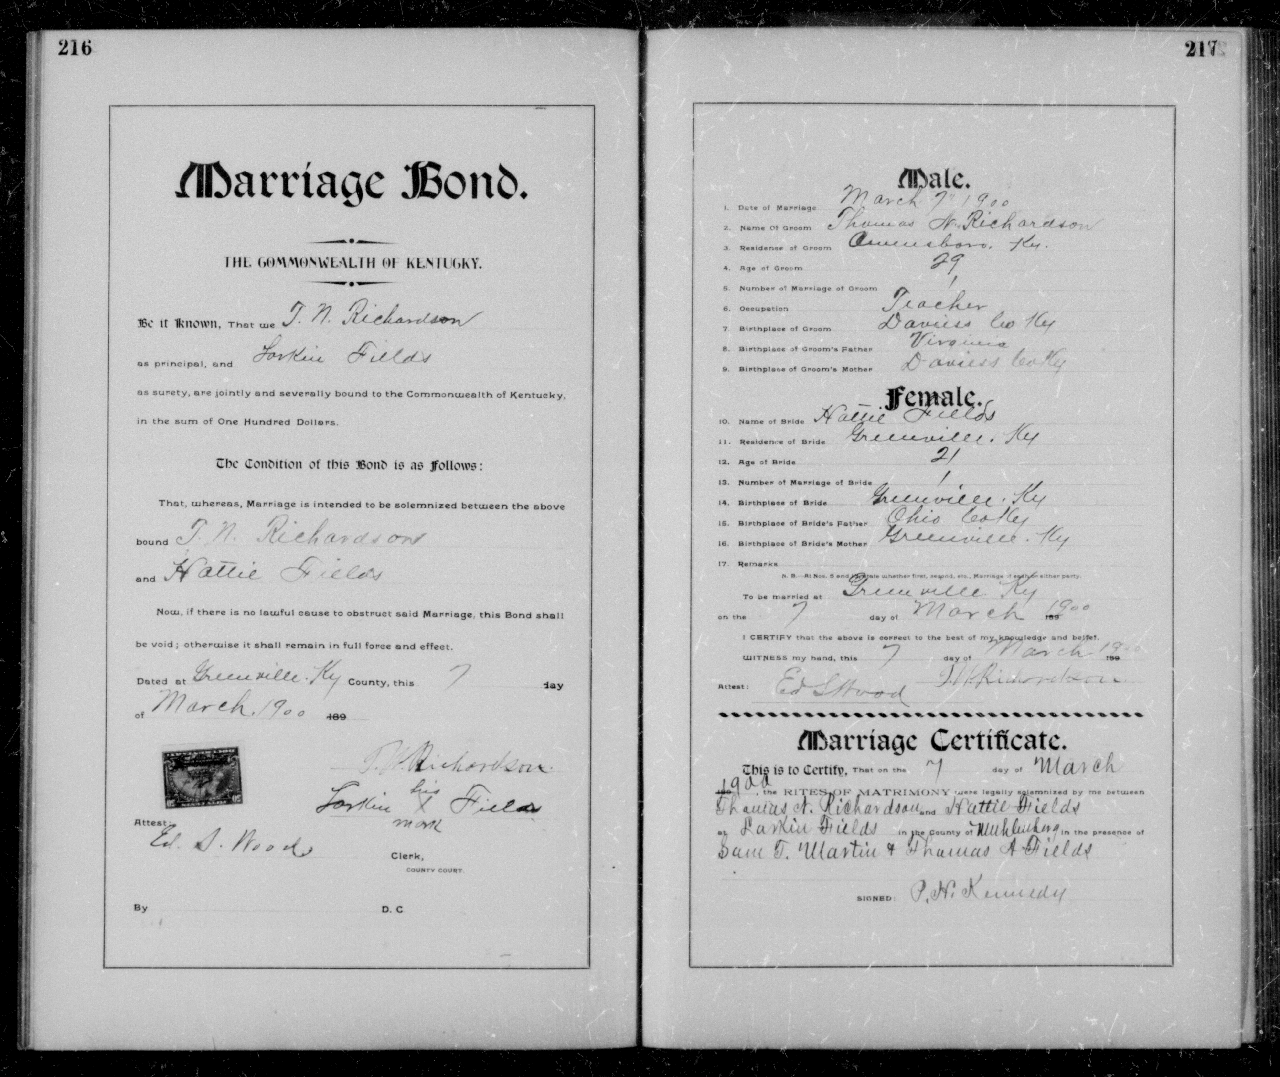 216
Marriage Bond.
THE COMMONWEALTH OF KENTUCKY.
Be it Known, That we T. N. Richardson
as principal, and Larkin Fields
as surety, are jointly and severally bound to the Commonwealth of Kentucky,
in the sum of One Hundred Dollars.
The Condition of this Bond is as Follows:
That, whereas, Marriage is intended to be solemnized between the above
bound T. N. Richardson
and Hattie Fields
Now, if there is no lawful cause to obstruct said Marriage, this Bond shall
be void; otherwise it shall remain in full force and effect.
Dated at Greenville. Ky County, this 7 day
of March 1900 189
T. N. Richardson.
his
Larkin X Fields
mark
Attest:
Ed. S. Wood
Clerk,
COUNTY COURT.
By D. C
217
Male.
1. Date of Marriage March 7" 1900
2. Name Of Groom Thomas N. Richardson
3. Residence of Groom Owensboro, Ky.
4. Age of Groom 29
5. Number of Marriage of Groom 1
6. Occupation Teacher
7. Birthplace of Groom Daviess Co Ky
8. Birthplace of Groom's Father Virginia
9. Birthplace of Groom's Mother Daviess Co Ky
Female.
10. Name of Bride Hattie Fields
11. Residence of Bride Greenville. Ky
12. Age of Bride 21
13. Number of Marriage of Bride 1
14. Birthplace of Bride Greenville. Ky
15. Birthplace of Bride's Father Ohio Co Ky
16. Birthplace of Bride's Mother Greenville. Ky
17. Remarks
N. B.—At Nos. 5 and state whether first, second, etc., Marriage if each or either party.
To be married at Greenville Ky
on the 7 day of March 1900 189
I CERTIFY that the above is correct to the best of my knowledge and belief.
WITNESS my hand, this 7 day of March 1900 190
Attest: Ed S Wood T. N. Richardson
Marriage Certificate.
This is to Certify, That on the 7 day of March
1900, the RITES OF MATRIMONY were legally solemnized by me between
Thomas N. Richardson and Hattie Fields
at Larkin Fields in the County of Muhlenberg in the presence of
Sam T. Martin & Thomas A Fields
SIGNED: P. H. Kennedy